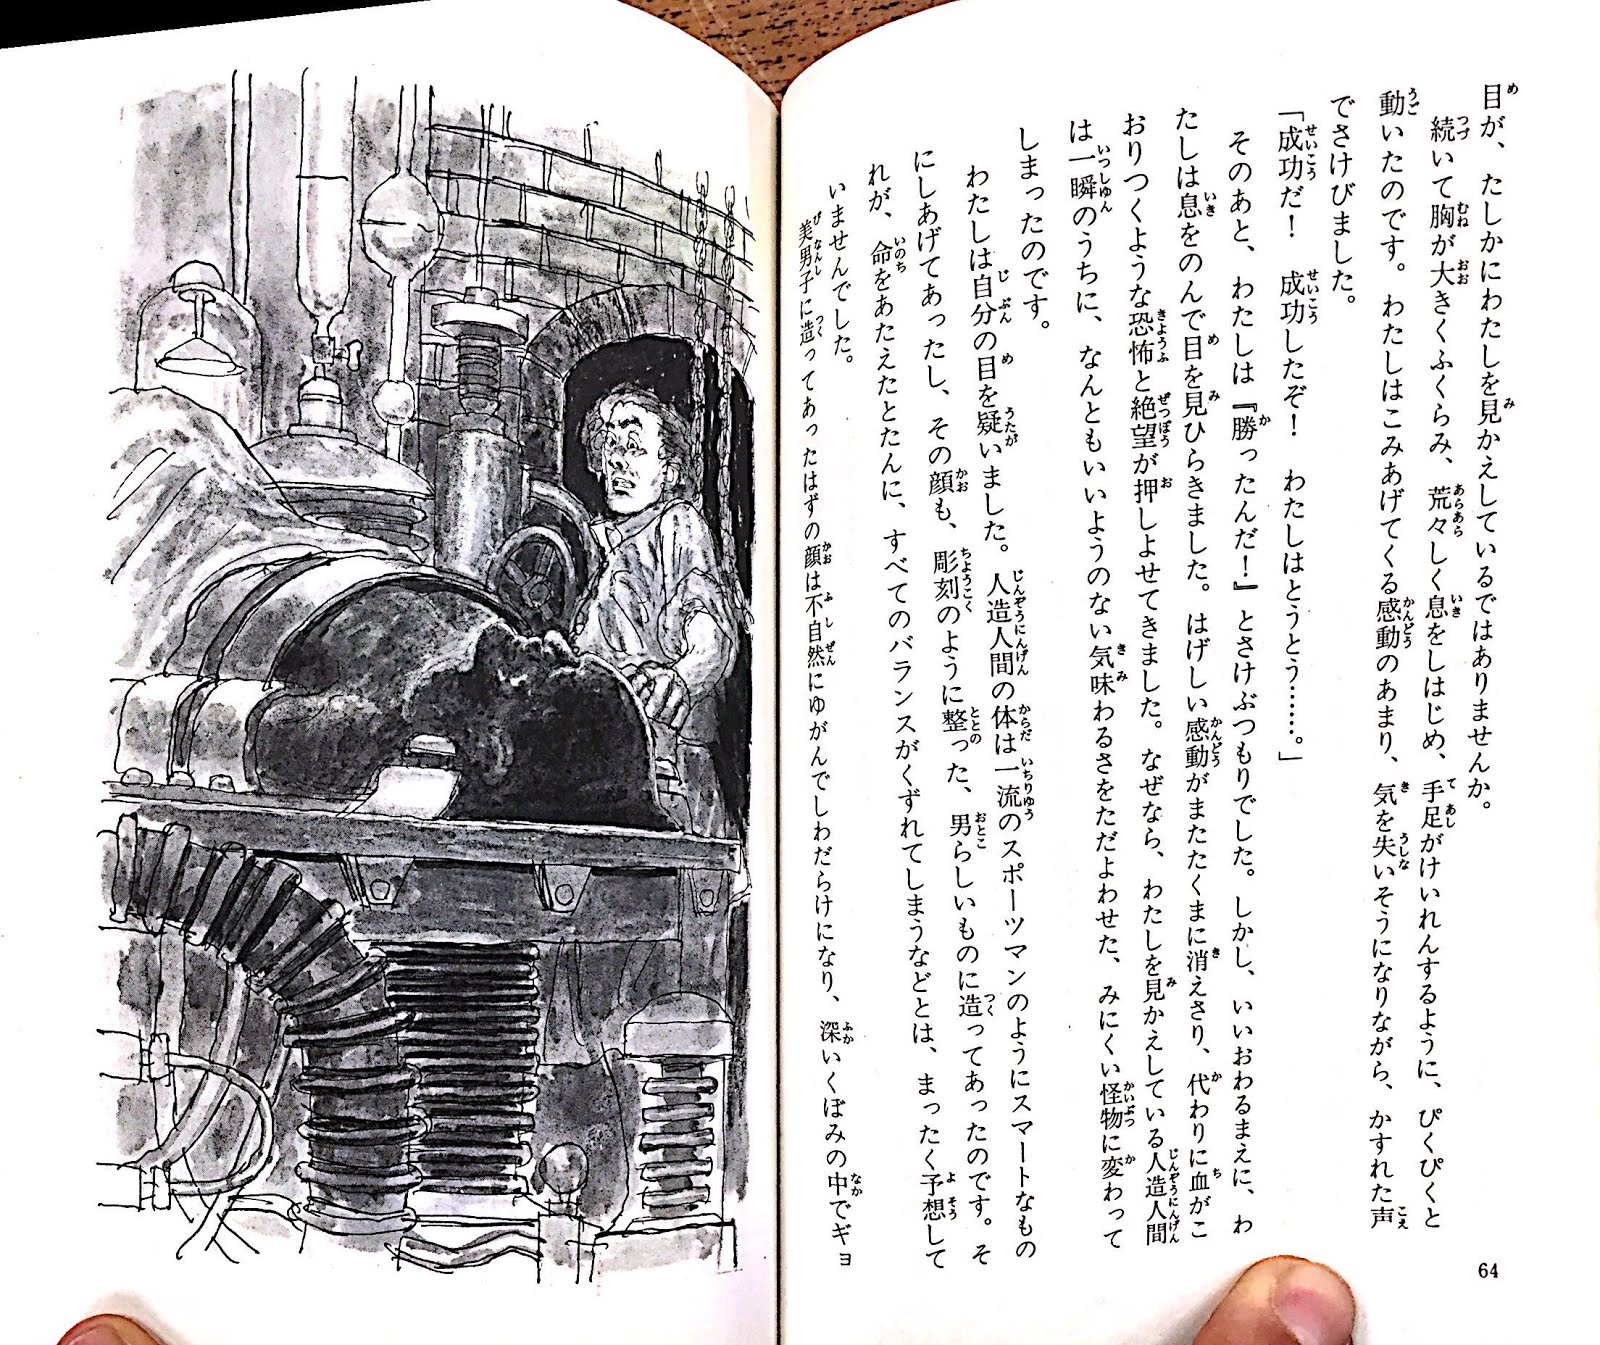 目が、たしかにわたしを見かえしているではありませんか。
続いて胸が大きくふくらみ、荒々しく息をしはじめ、手足がけいれんするように、ぴくぴくと
動いたのです。わたしはこみあげてくる感動のあまり、気を失いそうになりながら、かすれた声
でさけびました。
「成功だ！　成功したぞ！　わたしはとうとう……。」
そのあと、わたしは『勝ったんだ！』とさけぶつもりでした。しかし、いいおわるまえに、わ
たしは息をのんで目を見ひらきました。はげしい感動がまたたくまに消えさり、代わりに血がこ
おりつくような恐怖と絶望が押しよせてきました。なぜなら、わたしを見かえしている人造人間
は一瞬のうちに、なんともいいようのない気味わるさをただよわせた、みにくい怪物に変わって
しまったのです。
わたしは自分の目を疑いました。人造人間の体は一流のスポーツマンのようにスマートなもの
にしあげてあったし、その顔も、彫刻のように整った、男らしいものに造ってあったのです。そ
れが、命をあたえたとたんに、すべてのバランスがくずれてしまうなどとは、まったく予想して
いませんでした。
美男子に造ってあったはずの顔は不自然にゆがんでしわだらけになり、深いくぼみの中でギョ
64